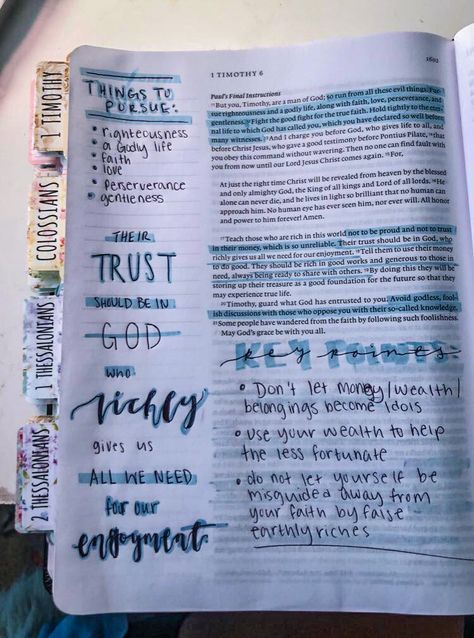 1 TIMOTHY
COLOSSIANS
1 THESSALONIANS
2 THESSALONIANS
THINGS TO
PURSUE:
• righteousness
• a Godly life
• faith
• love
• Perserverance
• gentleness
THEIR
TRUST
SHOULD BE IN
GOD
who
richly
gives us
ALL WE NEED
for our
enjoyment.
1 TIMOTHY 6
Paul's Final Instructions
But you, Timothy, are a man of God; so run from all these evil things. Pur-
sue righteousness and a godly life, along with faith, love, perseverance, and
gentleness. Fight the good fight for the true faith. Hold tightly to the eter-
nal life to which God has called you, which you have declared so well before
many witnesses. And I charge you before God, who gives life to all, and
before Christ Jesus, who gave a good testimony before Pontius Pilate, that
you obey this command without wavering. Then no one can find fault with
you from now until our Lord Jesus Christ comes again. For,
At just the right time Christ will be revealed from heaven by the blessed
and only almighty God, the King of all kings and Lord of all lords. He
alone can never die, and he lives in light so brilliant that no human can
approach him. No human eye has ever seen him, nor ever will. All honor
and power to him forever! Amen.
Teach those who are rich in this world not to be proud and not to trust
in their money, which is so unreliable. Their trust should be in God, who
richly gives us all we need for our enjoyment. Tell them to use their money
to do good. They should be rich in good works and generous to those in
need, always being ready to share with others. By doing this they will be
storing up their treasure as a good foundation for the future so that they
may experience true life.
Timothy, guard what God has entrusted to you. Avoid godless, fool-
ish discussions with those who oppose you with their so-called knowledge.
Some people have wandered from the faith by following such foolishness.
May God's grace be with you all.
KEY POINTS
• Don't let money/wealth/
belongings become Idols
• use your wealth to help
the less fortunate
• do not let yourself be
misguided away from
your faith by false
earthly riches